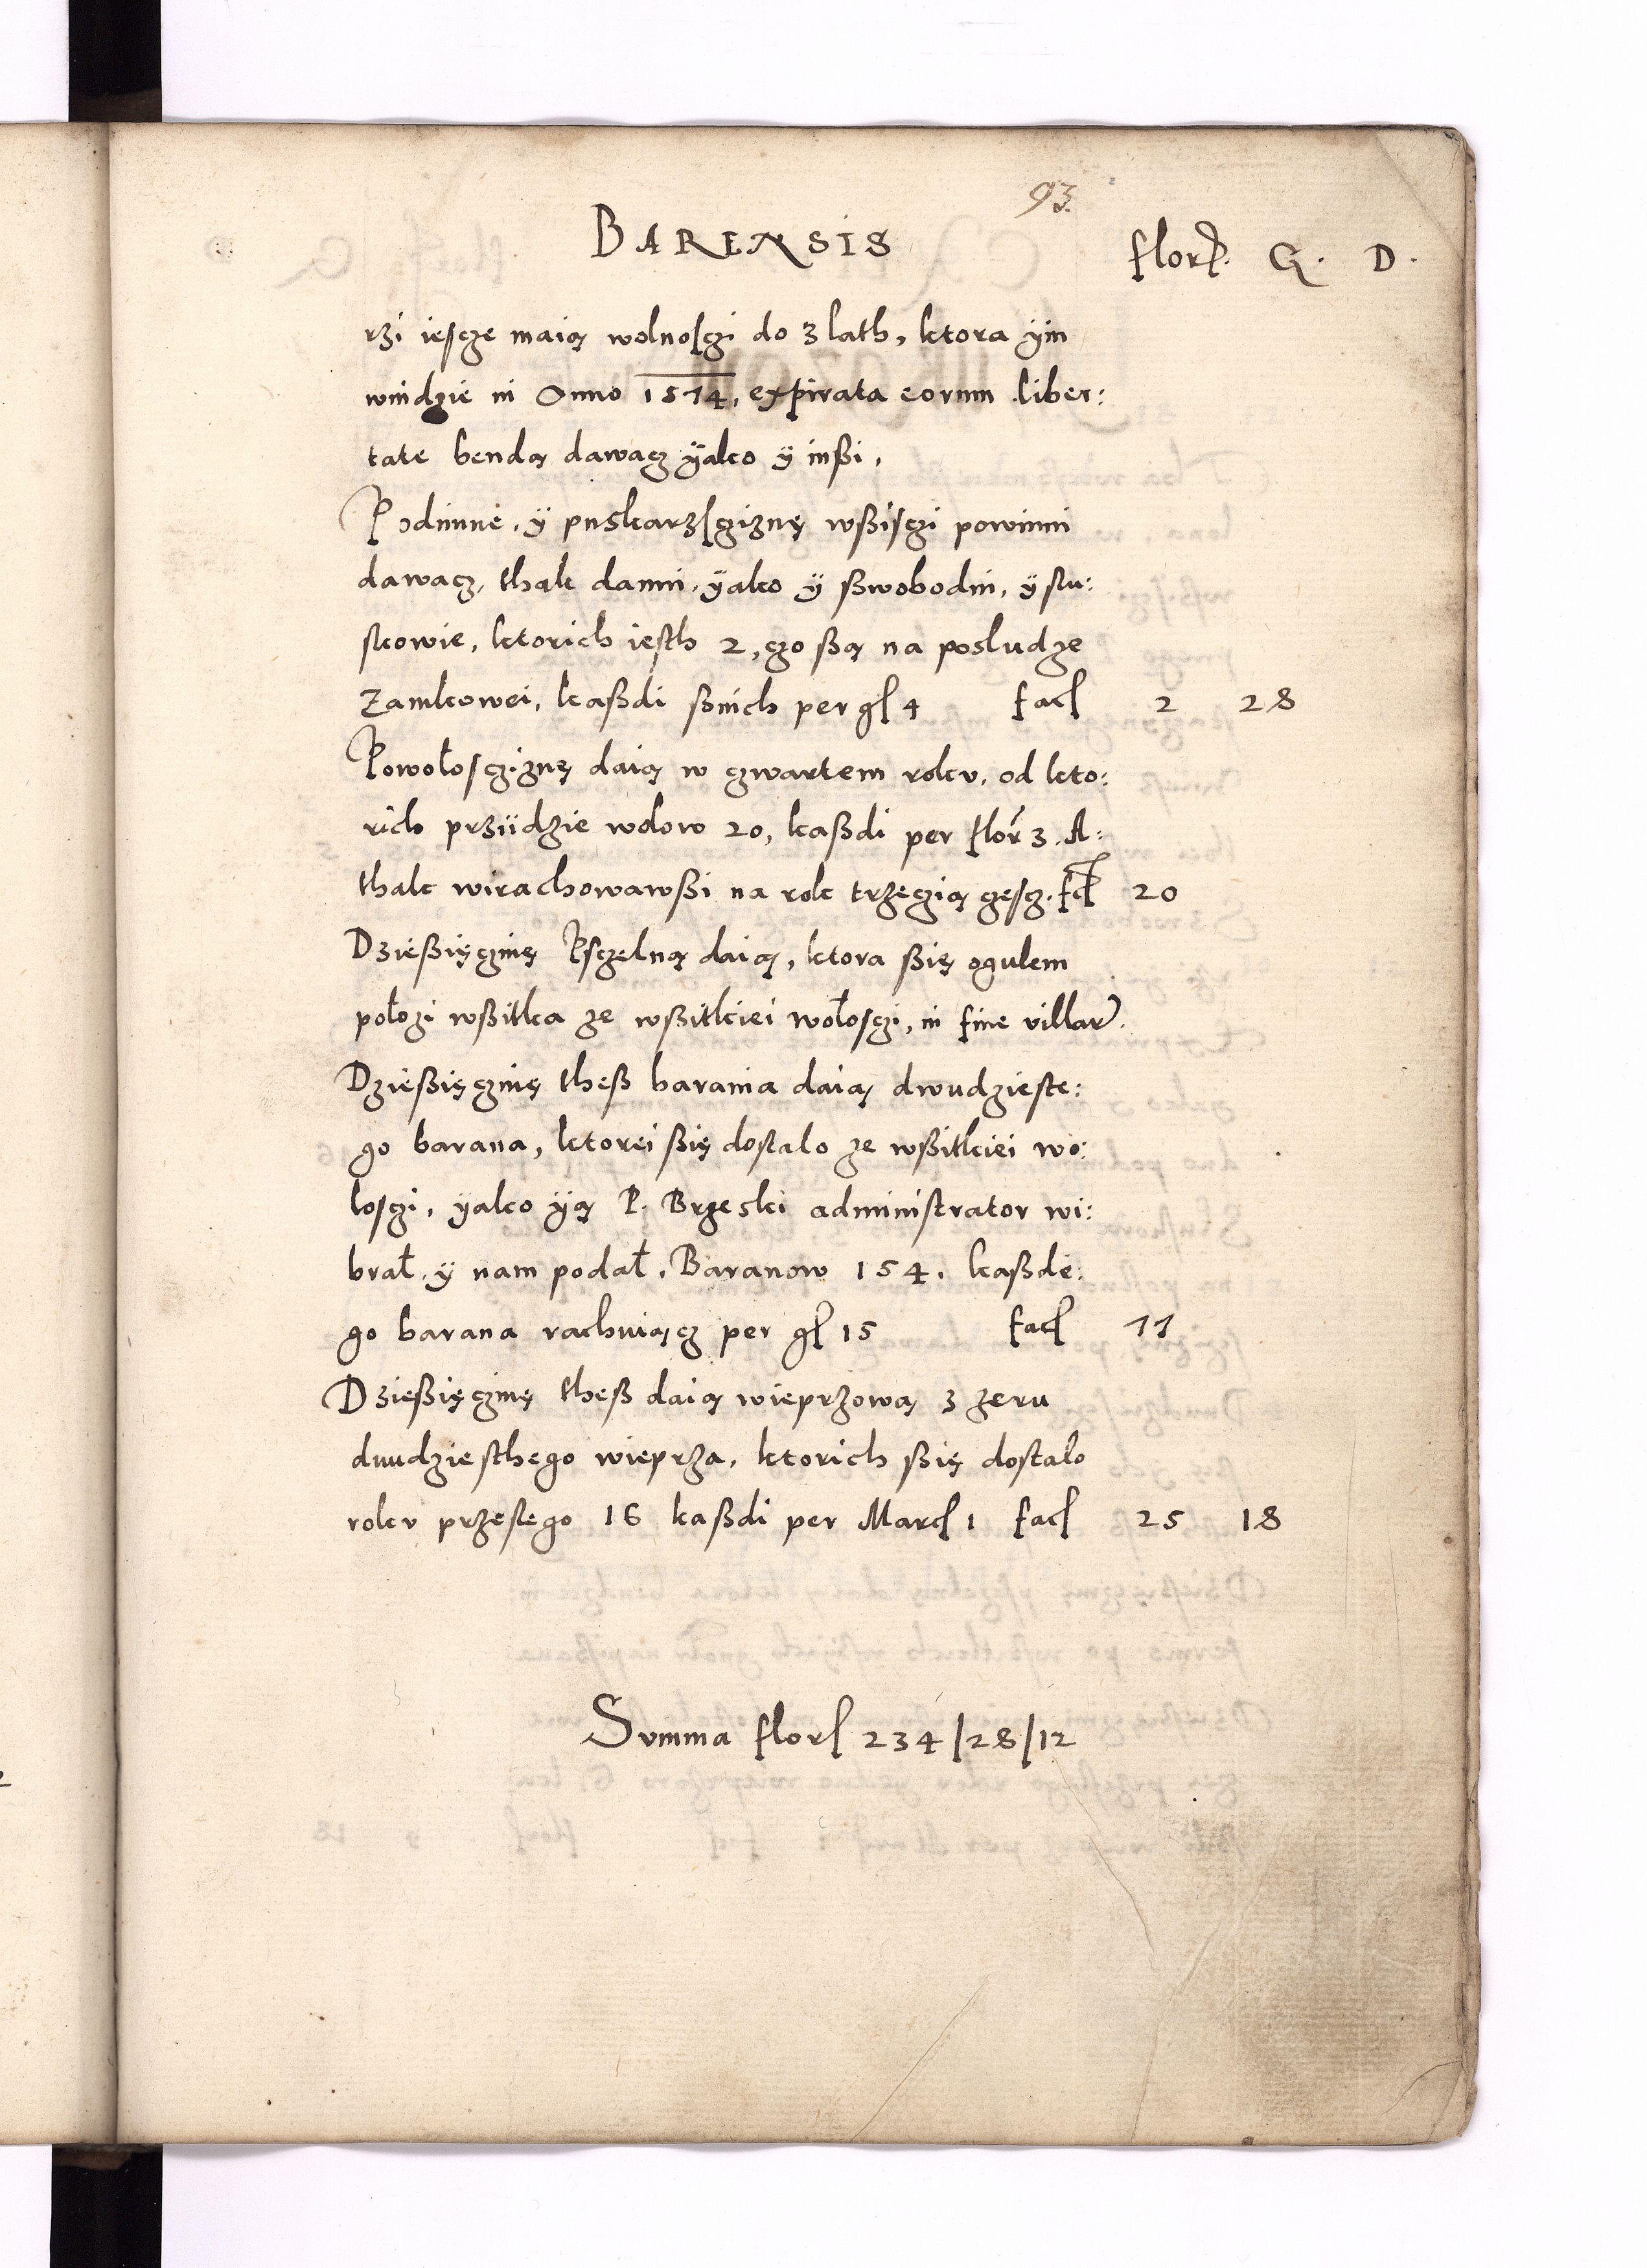 93.
BARENSIS
flor. G. D.
rzi iescze maią wolnosczi do 3 lath, ktora ÿm
windzie in Anno 1574, expirata eorum liber:
tate bendą dawacz ÿako ÿ inßi,
Podimne, ÿ puskarzsgiznę wßisczi powinni
dawacz, thak danni, ÿako ÿ ßwobodni, ÿ slu:
skowie, ktorich iesth 2, czo ßą na posludze
Zamkowei, kaßdi ßnich per gl 4 facl 2 28
Powołosczignę daią w czwartem rokv, od kto:
rich przÿdzie wolow 20, kaßdi per flor 3. A:
thak wirachowawßi na rok trzeczią czescz. fcl 20
Dzießięczinę Psczelną daią, ktora ßię ogulem
położi wßitka ze wßitkiei wołosczi, in fine villar.
Dzießięczinę theß barania daią dwudzieste:
go barana, ktorei ßię dostalo ze wßitkiei wo:
losczi, ÿako ÿą P. Brzeski administrator wi:
brał, ÿ nam podał, Baranow 154, kaßde:
go barana rachuiącz per gl 15 facl 77
Dzießięczinę theß daią wieprzową z zeru
dwudziesthego wieprza, ktorich ßię dostalo
rokv przeslego 16 kaßdi per Marcl 1 facl 25 18
Summa florl 234/28/12